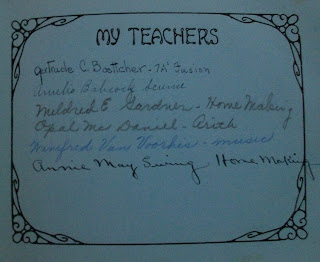 MY TEACHERS
Gertrude C. Boettcher - 7A' Fusion
Amelia Babcock Science
Mildred E. Gardner - Home Making
Opal Mc Daniel - Arith
Winifred Van Voorhis - music
Annie May Swing Home Making